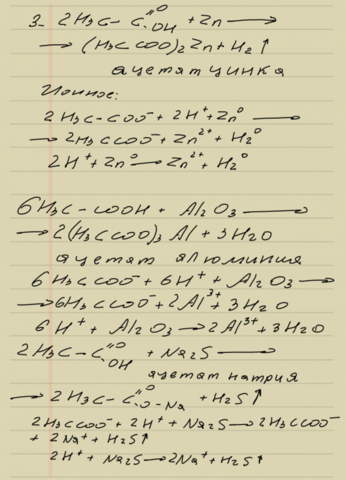 3- 2H₃C-C(=O)OH + Zn ⟶
⟶ (H₃CCOO)₂Zn + H₂↑
ацетат цинка
Ионное:
2H₃C-COO⁻ + 2H⁺ + Zn⁰ ⟶
⟶ 2H₃CCOO⁻ + Zn²⁺ + H₂⁰
2H⁺ + Zn⁰ ⟶ Zn²⁺ + H₂⁰
6H₃C-COOH + Al₂O₃ ⟶
⟶ 2(H₃CCOO)₃Al + 3H₂O
ацетат алюминия
6H₃CCOO⁻ + 6H⁺ + Al₂O₃ ⟶
⟶ 6H₃CCOO⁻ + 2Al³⁺ + 3H₂O
6H⁺ + Al₂O₃ ⟶ 2Al³⁺ + 3H₂O
2H₃C-C(=O)OH + Na₂S ⟶
ацетат натрия
⟶ 2H₃C-C(=O)O-Na + H₂S↑
2H₃CCOO⁻ + 2H⁺ + Na₂S ⟶ 2H₃CCOO⁻
+ 2Na⁺ + H₂S↑
2H⁺ + Na₂S ⟶ 2Na⁺ + H₂S↑